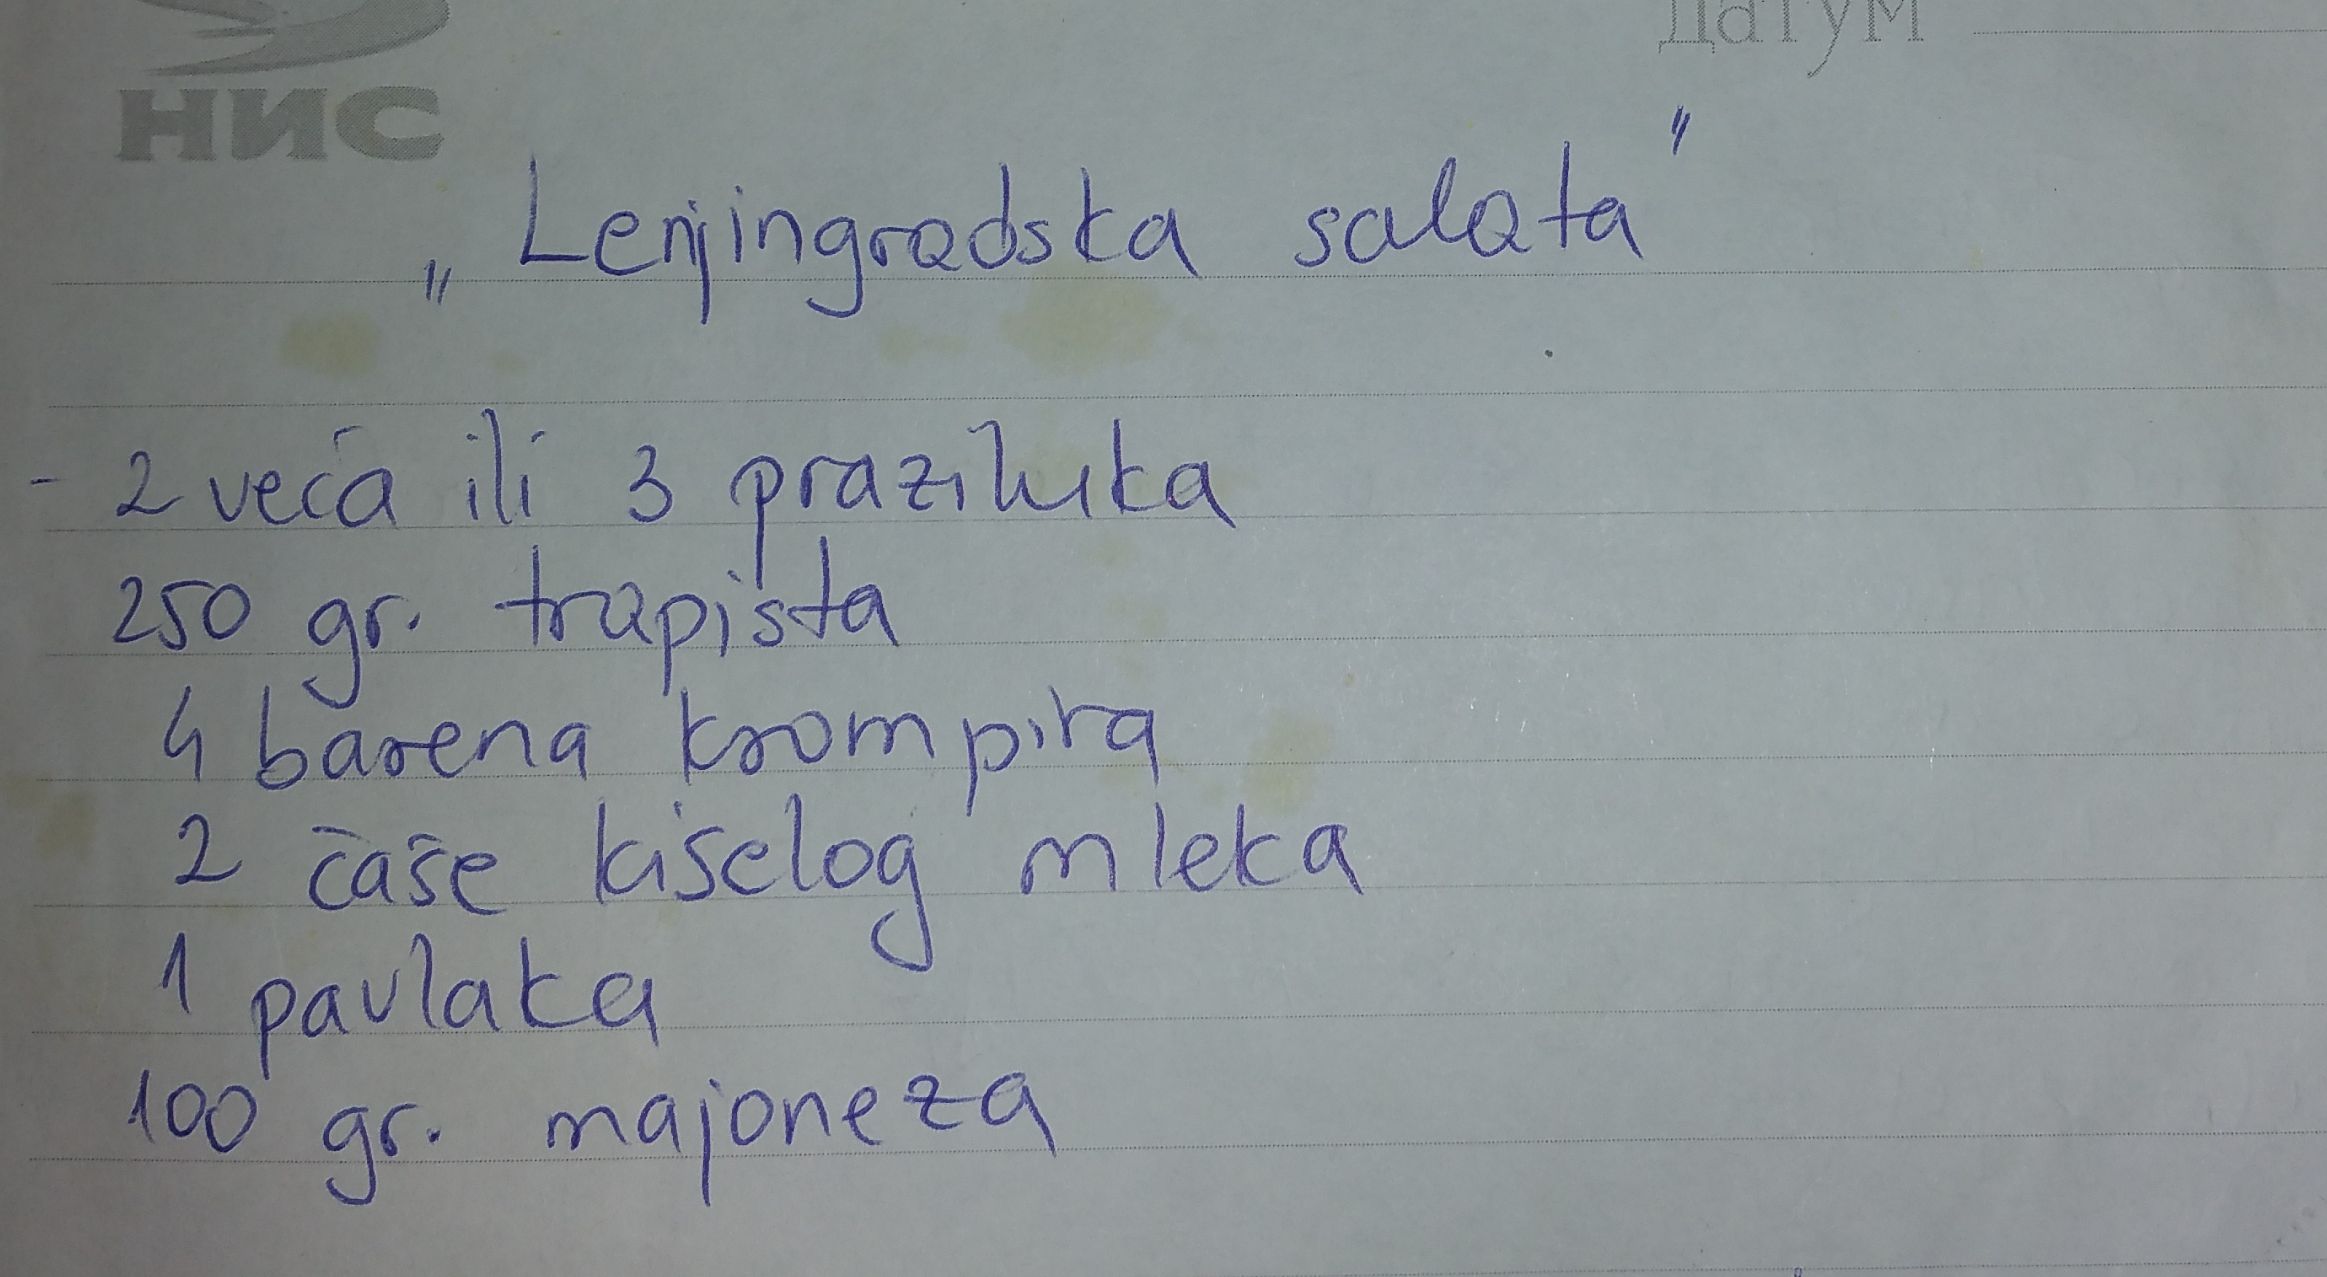 Датум
НИС
„Lenjingradska salata"
- 2 veća ili 3 praziluka
250 gr. trapista
4 barena krompira
2 čaše kiselog mleka
1 pavlaka
100 gr. majoneza